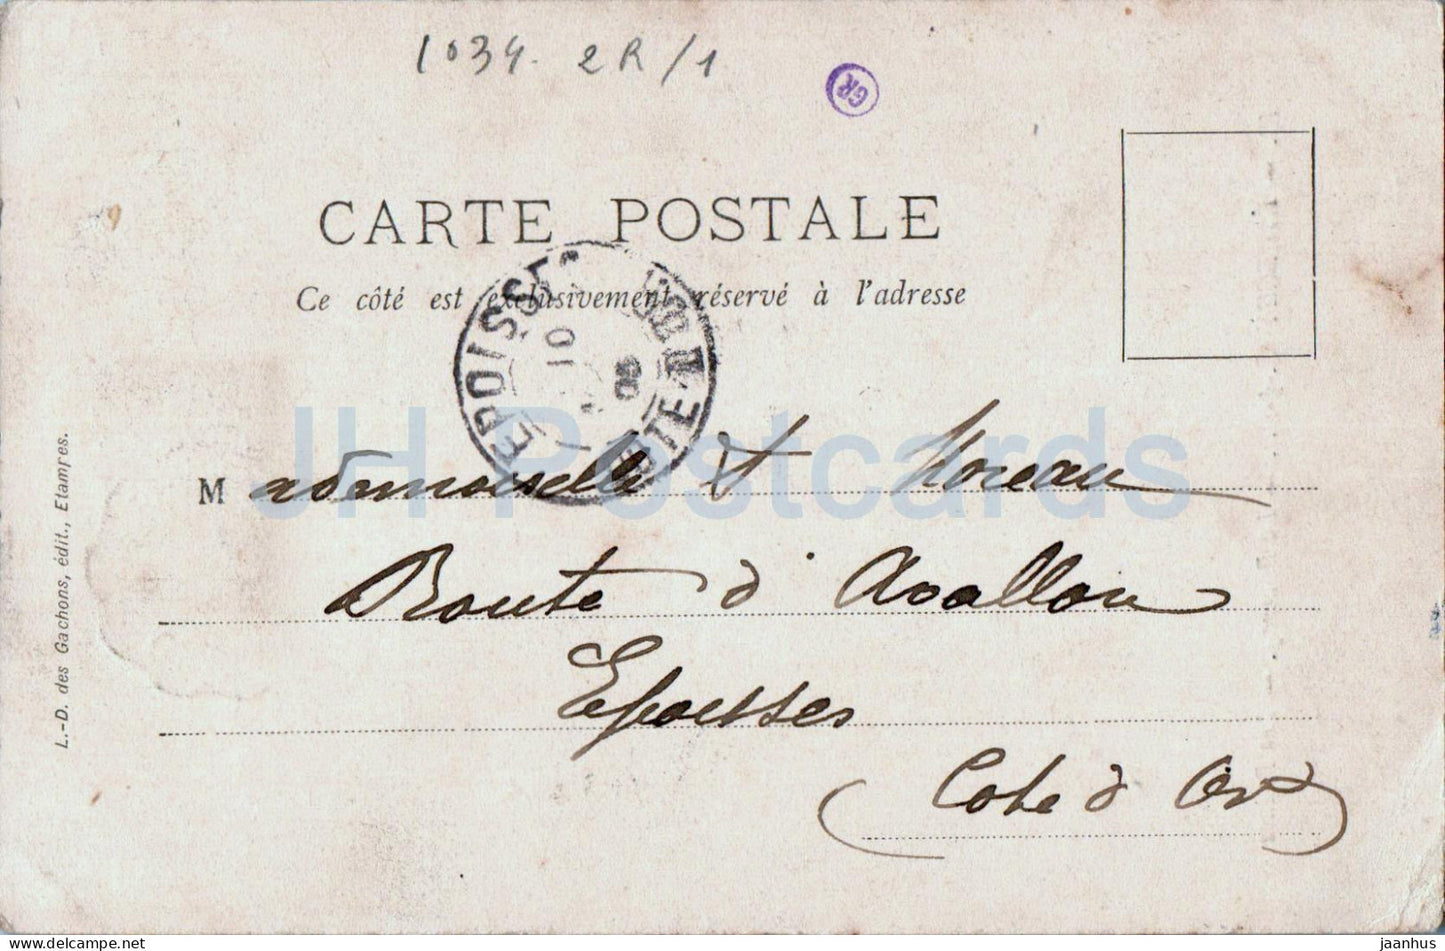 1034. 2R/1
GR
CARTE POSTALE
Ce côté est exclusivement réservé à l'adresse
EPOISSES
CÔTE
10
Mademoiselle Moreau
Route d'Avallon
Epoisses
(Cote d'Or)
L.-D. des Gachons, édit., Etampes.
JH Postcards
jaanhus